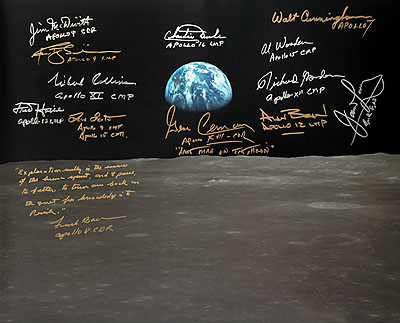 Jim McDivitt
APOLLO 9 CDR
APOLLO 9 LMP
Charlie Duke
APOLLO 16 LMP
Walt Cunningham
APOLLO 7
Al Worden
Apollo 15 CMP
Michael Collins
Apollo XI CMP
Richard Gordon
Apollo XII CMP
Fred Haise
Apollo 13 LMP
Gene Cernan
APOLLO XVII - CDR
"LAST MAN ON THE MOON"
Alan Bean
APOLLO 12 LMP
"Exploration really is the essence
of the human spirit and to pause,
to falter, to turn our back on
the quest for knowledge is to
Perish."
Frank Borman
Apollo 8 CDR